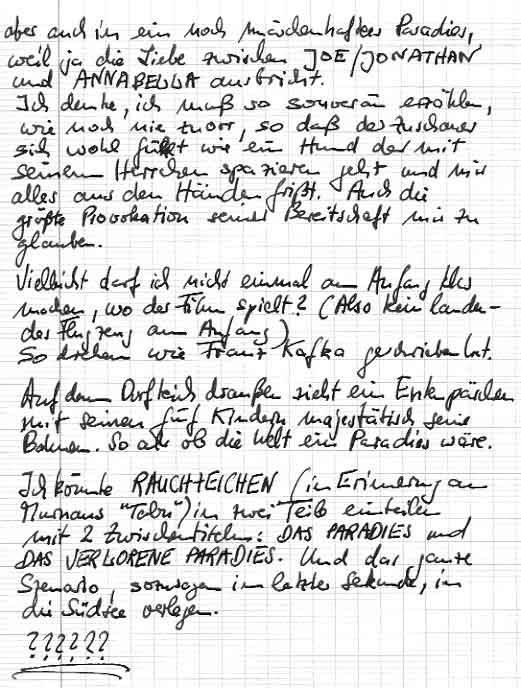 aber auch in ein noch märchenhafteres Paradies,
weil ja die Liebe zwischen JOE/JONATHAN
und ANNABELLA ausbricht.
Ich denke, ich muß so souverän erzählen,
wie noch nie zuvor, so daß der Zuschauer
sich wohl fühlt wie ein Hund der mit
seinem Herrchen spazieren geht und mir
alles aus den Händen frißt. Auch die
größte Provokation seiner Bereitschaft mir zu
glauben.
Vielleicht darf ich nicht einmal am Anfang klar
machen, wo der Film spielt? (Also kein landen-
des Flugzeug am Anfang)
So drehen wie Franz Kafka geschrieben hat.
Auf dem Dorfteich draußen zieht ein Entenpärchen
mit seinen fünf Kindern majestätisch seine
Bahnen. So als ob die Welt ein Paradies wäre.
Ich könnte RAUCHZEICHEN (in Erinnerung an
Murnaus "Tabu") in zwei Teile einteilen
mit 2 Zwischentiteln: DAS PARADIES und
DAS VERLORENE PARADIES. Und das ganze
Szenario, sozusagen in letzter Sekunde, in
die Südsee verlegen.
??????